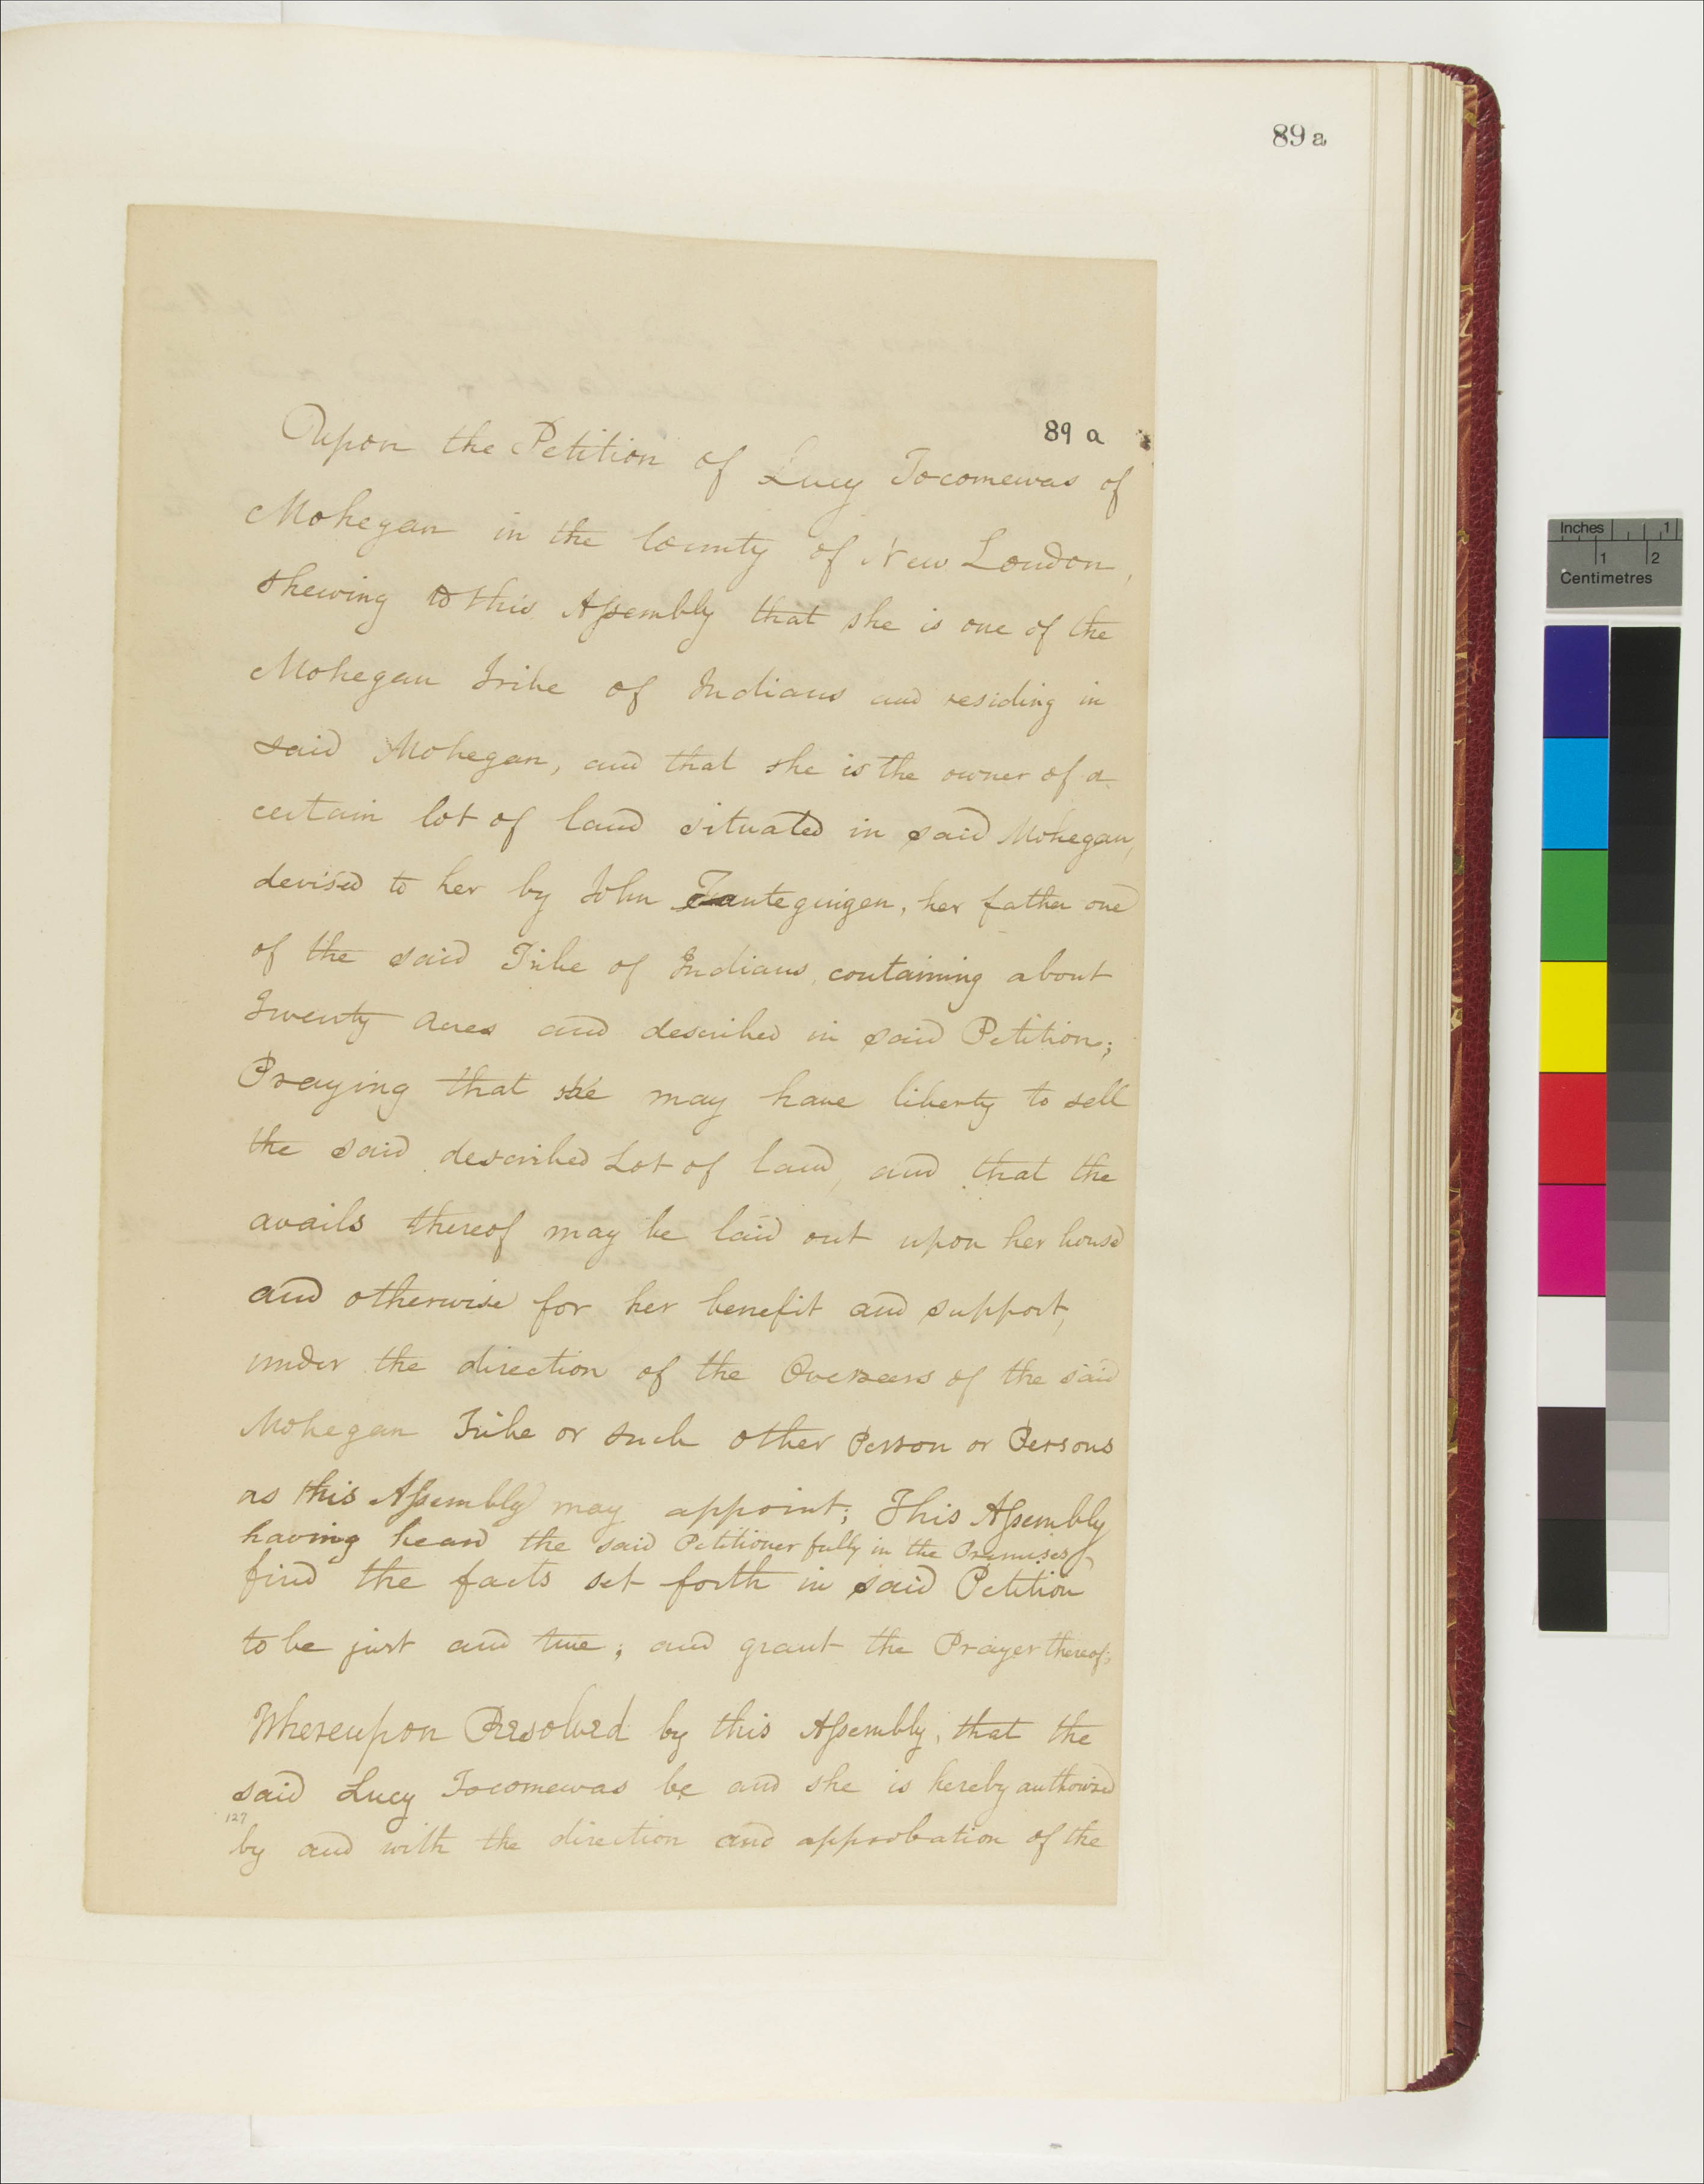 89 a
89 a
Upon the Petition of Lucy Tocomewas of
Mohegan in the County of New London,
shewing to this Assembly that she is one of the
Mohegan Tribe of Indians and residing in
said Mohegan, and that she is the owner of a
certain lot of land situated in said Mohegan,
devised to her by John Tantequigen, her father one
of the said Tribe of Indians, containing about
Twenty acres and described in said Petition;
Praying that she may have liberty to sell
the said described Lot of land, and that the
avails thereof may be laid out upon her house
and otherwise for her benefit and support,
under the direction of the Overseers of the said
Mohegan Tribe or such other Person or Persons
as this Assembly may appoint; This Assembly
having heard the said Petitioner fully in the Premises
find the facts set forth in said Petition
to be just and true; and grant the Prayer thereof;
Whereupon Resolved by this Assembly, that the
said Lucy Tocomewas be and she is hereby authorized
127
by and with the direction and approbation of the
Inches 1
1 2
Centimetres